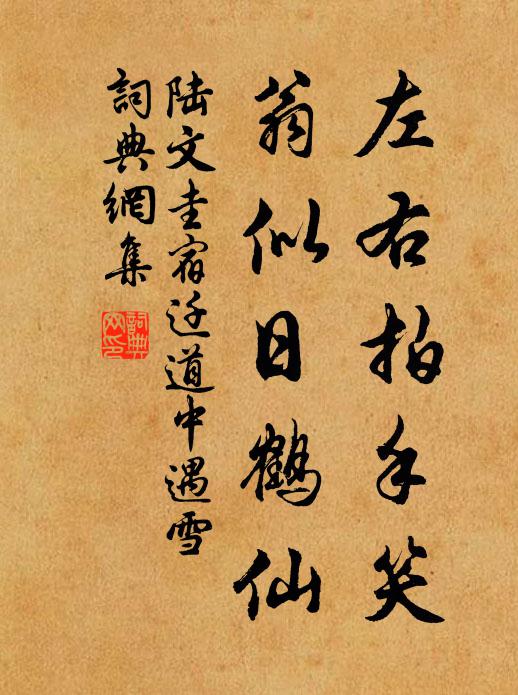 左右拍手笑
翁似日鶴仙
陆文圭宿迁道中遇雪
詞典網集
詞典
网印